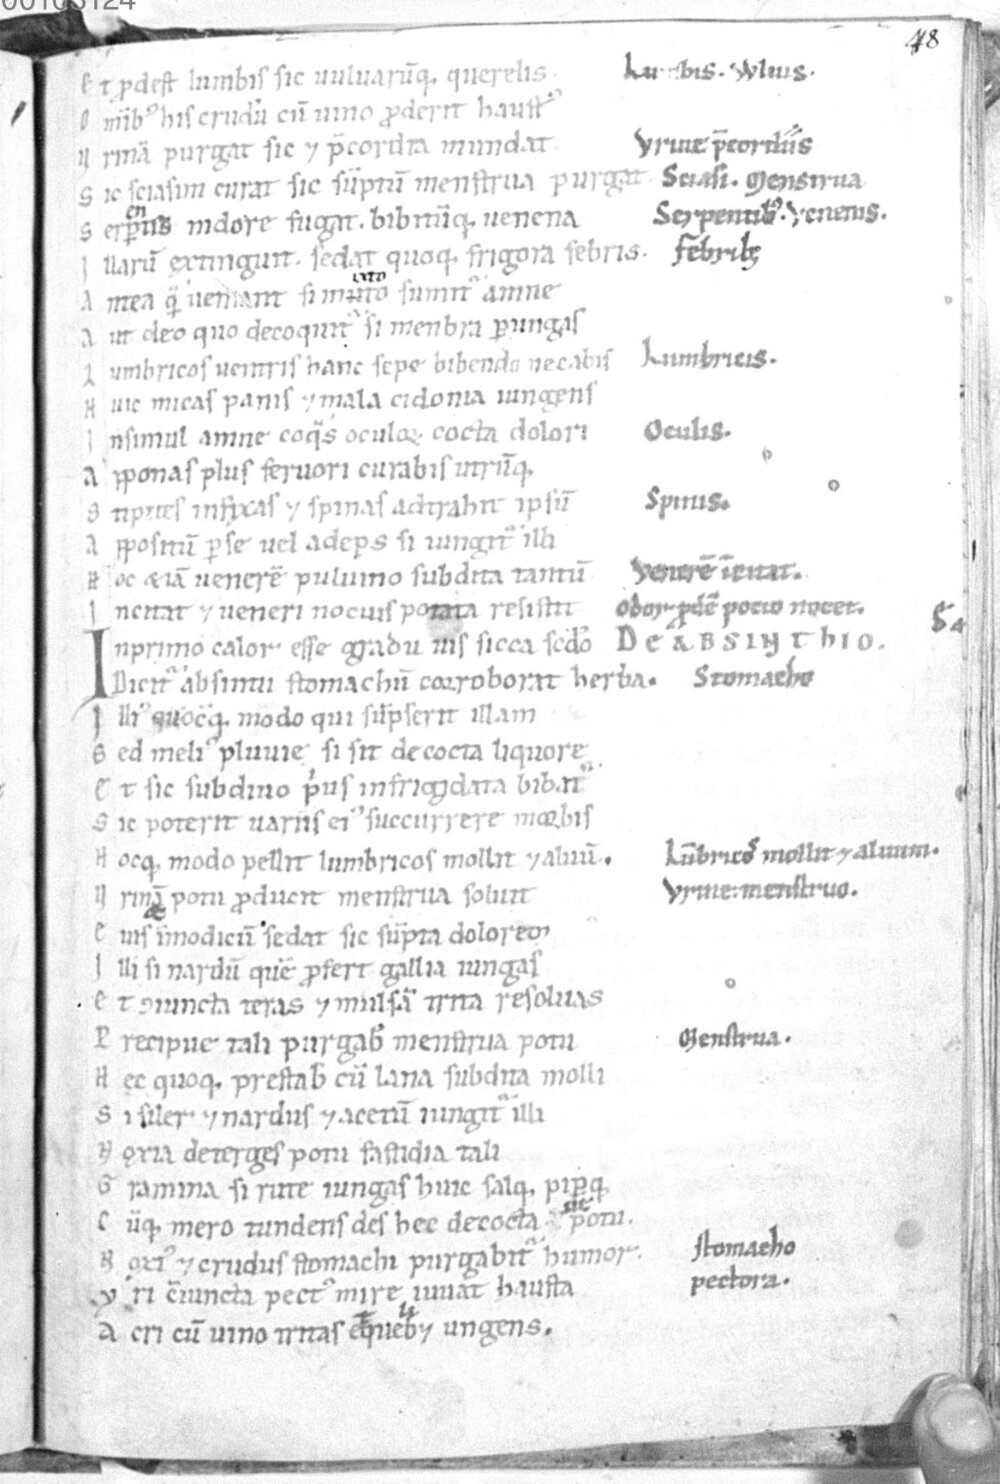 00103124
48
Et ꝓdest lumbis sic uuluarūq, querelis. Lumbis. Vuluis.
Omībꝰ his crudū cū uino ꝓderit haustꝰ
Vrinā purgat sic ⁊ p̄cordia mundat Vrine p̄cordiis
Sic sciasim curat sic sūptū menstrua purgat. Sciasi. Menstrua
Serpentis nidore fugat. bibitūq, uenena Serpentibꝰ. Venenis.
Illarū extinguit. sedat quoq, frigora febris. Febribꝫ
Antea q̄ ueniant si
Aut oleo quo decoquitᷣ si menbra ꝑungas
Lumbricos uentris hanc sepe bibendo necabis Lumbricis.
Huic micas panis ⁊ mala cidonia iungens
Insimul amne coq̄s oculoꝝ cocta dolori Oculis.
Apponas plus feruori curabis utrūq,
Stipites infixas ⁊ spinas adtrahit ipsū Spinis.
Appositū ꝑ se uel adeps si iungitᷣ illi
Hoc etiā uenerē puluino subdita tantū Venerē īcitat.
Incitat ⁊ ueneri nocuis potata resistit odor ꝓdē potio nocet.
Inprimo calor esse gradu uis sicca scd̄o DE ABSINTHIO.
Dicitᷣ absintii stomachū corroborat herba. Stomacho
Illiꝰ quocūq, modo qui sūpserit illam
Sed meliꝰ pluuie si sit decocta liquore
Et sic subdiuo pͥus infrigidata bibatᷣ
Sic poterit uariis eiꝰ succurrere morbis
Hocq, modo pellit lumbricos mollit ⁊ aluū. Lūbricos mollit ⁊ aluum.
Vrinā potu ꝓducit menstrua soluit Vrine: menstruo.
sedat sic sūpta dolorem
Illi si nardū quē ꝓfert gallia iungas
Et ꝯiuncta teras ⁊ mulsā trita resoluas
Precipue tali purgab̄ menstrua potu Menstrua.
Hec quoq, prestab̄ cū lana subdita molli
Si siler ⁊ nardus ⁊ acetū iungitᷣ illi
Noxia deterges potu fastidia tali
Gramina si rute iungas huic salq, pipꝑq,
Cūq, mero tundens des hec decocta sic potu.
Noxiꝰ ⁊ crudus stomachi purgabitᷣ humor. stomacho
c̄iuncta pectꝰ mire iuuat hausta pectora.
Acri cū uino tritas ungens.